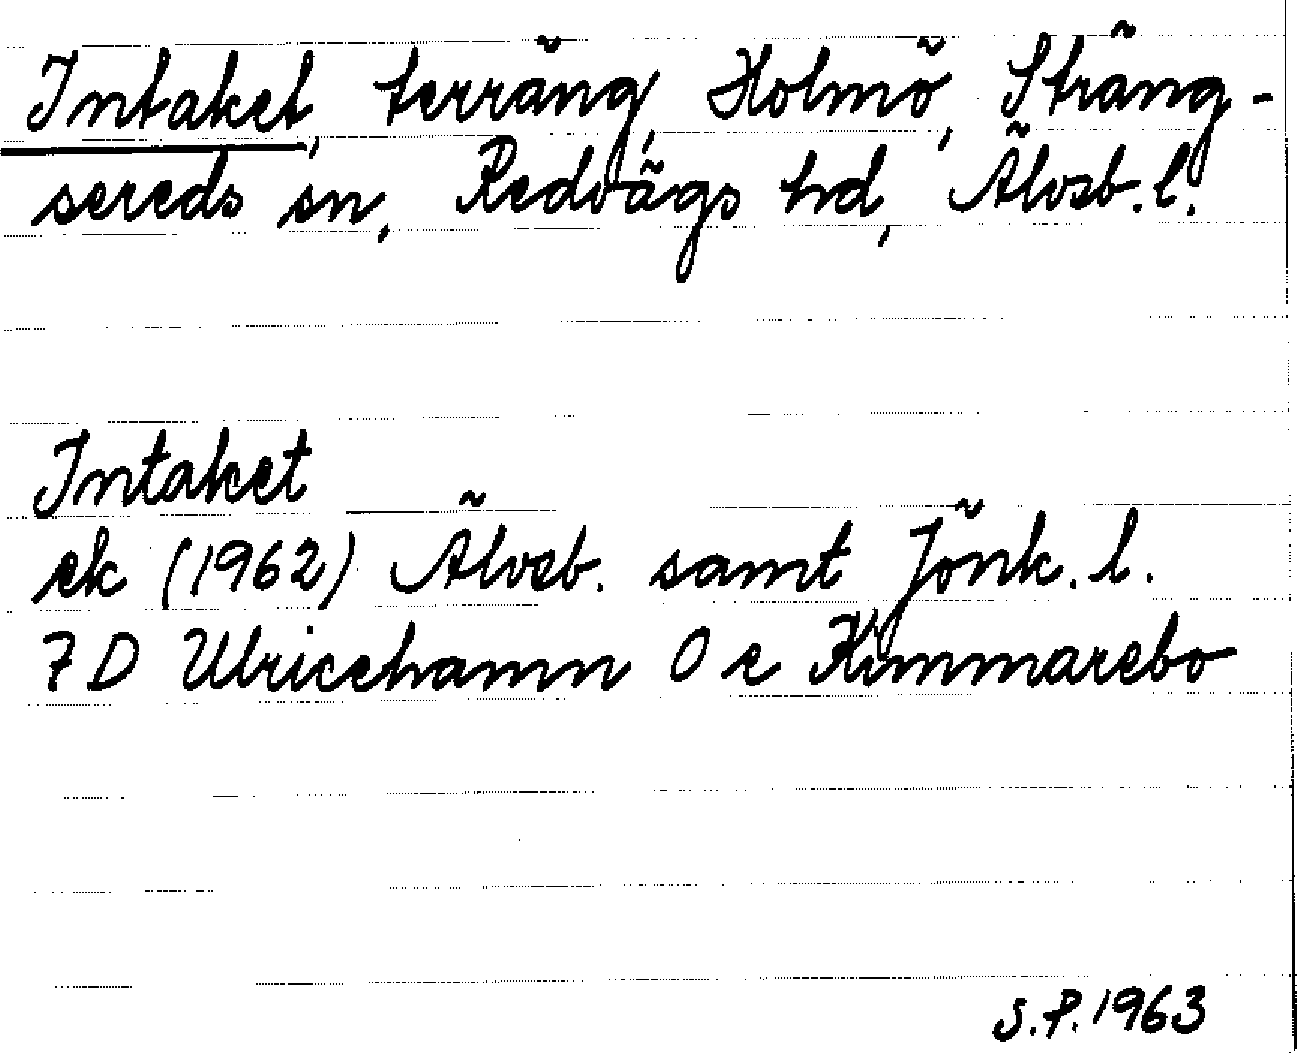 Intaket, terräng, Holmö, Sträng-
sereds sn, Redvägs hd, Älvsb. l.
Intaket
ek (1962) Älvsb. samt Jönk. l.
7 D Ulricehamn O e Kimmarebo
S.P. 1963